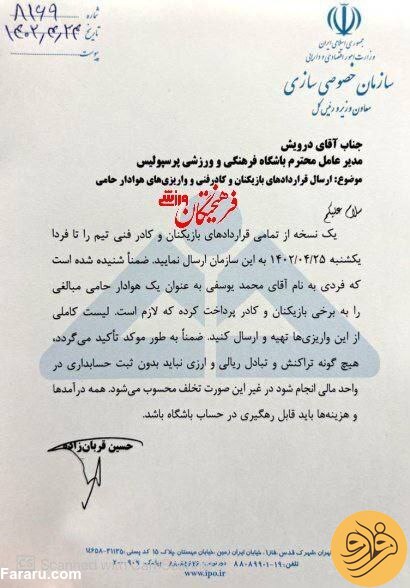 شماره ۸۱۶۹
تاریخ ۱۴۰۲,۴,۲۴
پیوست
جمهوری اسلامی ایران
وزارت امور اقتصادی و دارایی
سازمان خصوصی سازی
معاون وزیر و رئیس کل
جناب آقای درویش
مدیر عامل محترم باشگاه فرهنگی و ورزشی پرسپولیس
موضوع: ارسال قراردادهای بازیکنان و کادرفنی و واریزی‌های هوادار حامی
فرهیختگان ورزشی
سلام علیکم
یک نسخه از تمامی قراردادهای بازیکنان و کادر فنی تیم را تا فردا
یکشنبه ۱۴۰۲/۰۴/۲۵ به این سازمان ارسال نمایید. ضمناً شنیده شده است
که فردی به نام آقای محمد یوسفی به عنوان یک هوادار حامی مبالغی
را به برخی بازیکنان و کادر پرداخت کرده که لازم است. لیست کاملی
از این واریزی‌ها تهیه و ارسال کنید. ضمناً به طور موکد تأکید می‌گردد،
هیچ گونه تراکنش و تبادل ریالی و ارزی نباید بدون ثبت حسابداری در
واحد مالی انجام شود در غیر این صورت تخلف محسوب می‌شود. همه درآمدها
و هزینه‌ها باید قابل رهگیری در حساب باشگاه باشد.
حسین قربان‌زاده
تهران شهرک قدس، فاز۱، خیابان ایران زمین، خیابان مهستان پلاک، ۱۵ کد پستی:
تلفن: ۱۹-۸۸۰۸۹۹۰۱
www.ipo.ir
CS Scanned with
Fararu.com
فرارو